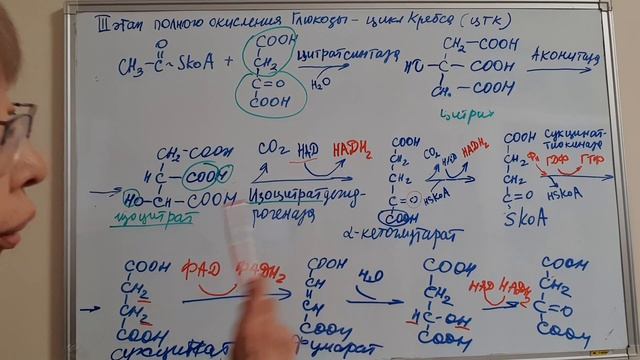 III этап полного окисления Глюкозы - цикл Кребса (ЦТК)
CH₃-C~SKoA + COOH цитратсинтаза CH₂-COOH Аконитаза
O CH₂ H₂O HO-C-COOH
C=O CH₂-COOH
COOH цитрат
CH₂-COOH CO₂ НАД НАДН₂ COOH CO₂ НАД НАДН₂ COOH Сукцинат-
H-C-COOH CH₂ HSKoA CH₂ тиокиназа
HO-CH-COOH Изоцитратдегид- CH₂ CH₂ Фн ГДФ ГТФ
изоцитрат рогеназа C=O C=O HSKoA
COOH SKoA
α-кетоглутарат
COOH ФАД ФАДН₂ COOH H₂O COOH НАД НАДН₂ COOH
CH₂ CH CH₂ CH₂
CH₂ CH H-C-OH C=O
COOH COOH COOH COOH
сукцинат фумарат